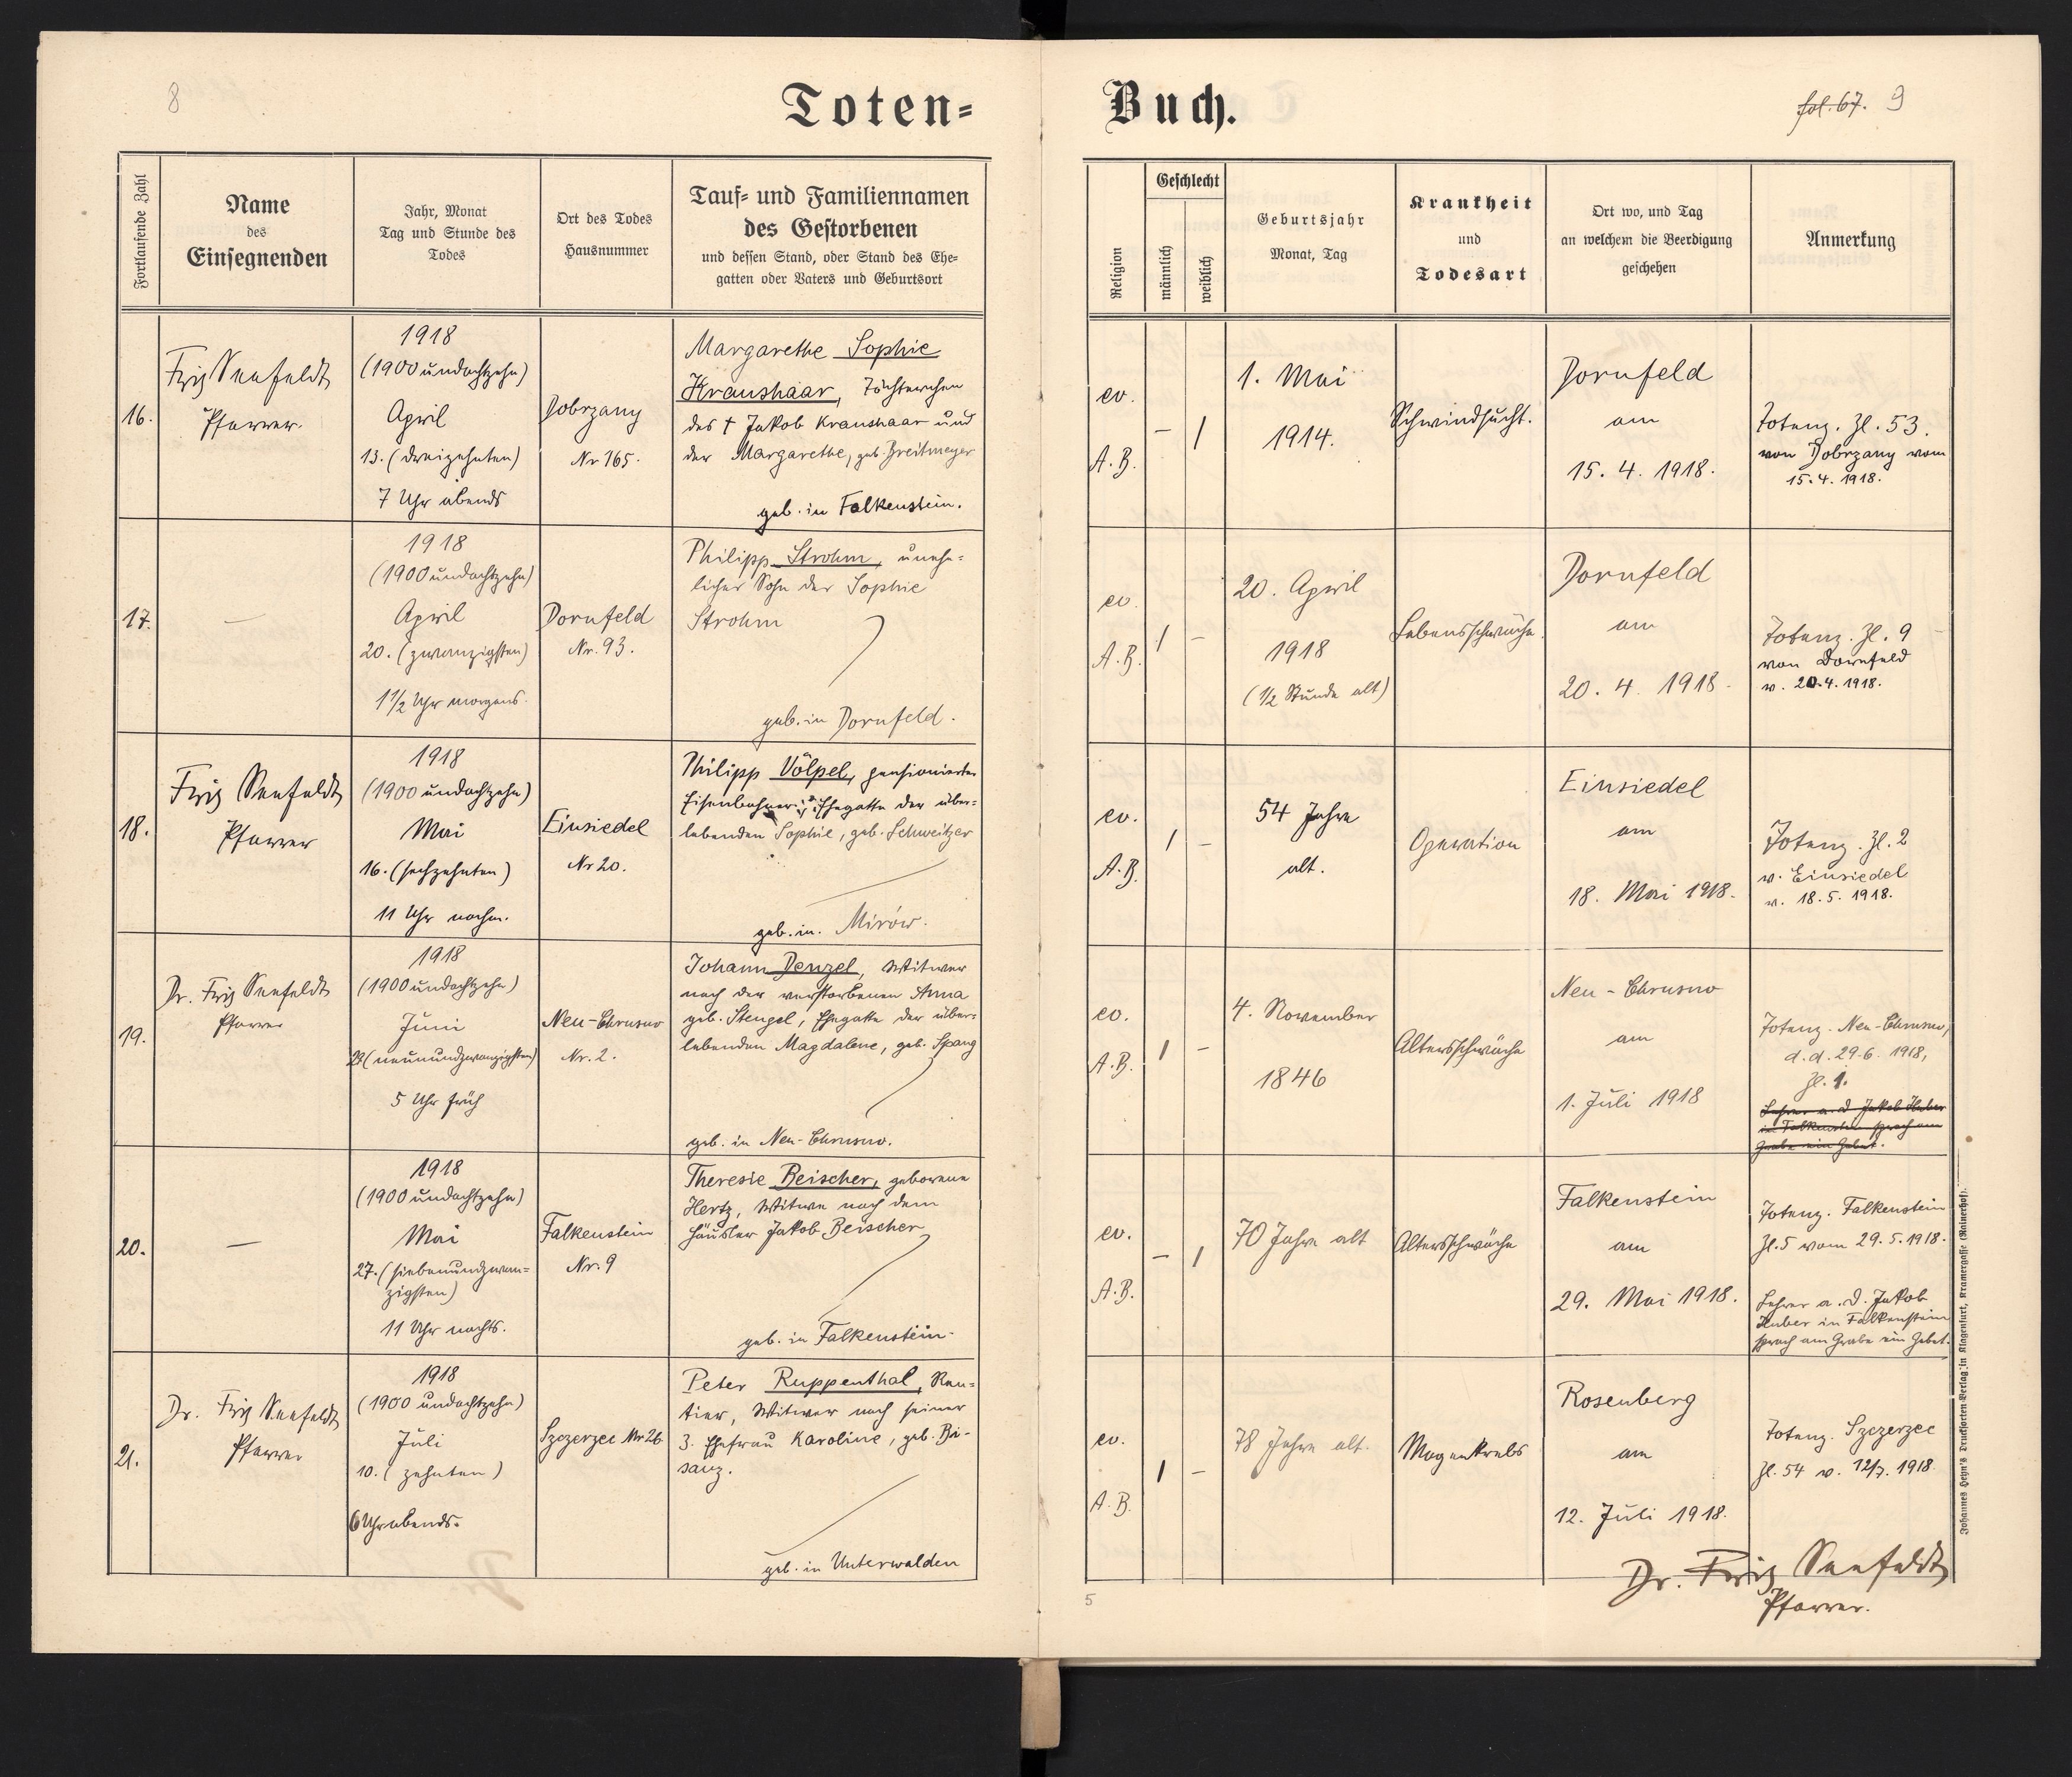 8
Toten=
Fortlaufende Zahl
Name
des
Einsegnenden
Jahr, Monat
Tag und Stunde des
Todes
Ort des Todes
Hausnummer
Tauf= und Familiennamen
des Gestorbenen
und dessen Stand, oder Stand des Ehe=
gatten oder Vaters und Geburtsort
16.
Fritz Seefeldt
Pfarrer.
1918
(1900 undachtzehn)
April
13. (dreizehnten)
7 Uhr abends
Dobrzany
Nr 165.
Margarethe Sophie
Kraushaar, Töchterchen
des † Jakob Kraushaar und
der Margarethe, geb. Breitmeyer
geb. in Falkenstein.
17.
—
1918
(1900 undachtzehn)
April
20. (zwanzigsten)
1 1/2 Uhr morgens.
Dornfeld
Nr. 93.
Philipp Strohm, unehe=
licher Sohn der Sophie
Strohm
geb. in Dornfeld.
18.
Fritz Seefeldt
Pfarrer
1918
(1900 undachtzehn)
Mai
16. (sechzehnten)
11 Uhr nachm.
Einsiedel
Nr 20.
Philipp Völpel, pensionierter
Eisenbahner, Ehegatte der über=
lebenden Sophie, geb. Schweitzer
geb. in. Mirów.
19.
Dr. Fritz Seefeldt
Pfarrer
1918
(1900 undachtzehn)
Juni
29. (neunundzwanzigsten)
5 Uhr früh
Neu-Chrusno
Nr. 2.
Johann Denzel, Witwer
nach der verstorbenen Anna
geb. Stengel, Ehegatte der über=
lebenden Magdalene, geb. Spang
geb. in Neu-Chrusno.
20.
—
1918
(1900 undachtzehn)
Mai
27. (siebenundzwan=
zigsten)
11 Uhr nachts.
Falkenstein
Nr. 9
Theresie Beischer, geborene
Hertz, Witwe nach dem
Häusler Jakob Beischer
geb. in Falkenstein.
21.
Dr. Fritz Seefeldt
Pfarrer
1918
(1900 undachtzehn)
Juli
10. (zehnten)
6 Uhr abends.
Szczerzec Nr 26.
Peter Ruppenthal, Ren=
tier, Witwer nach seiner
3. Ehefrau Karoline, geb. Bi=
sanz.
geb. in Unterwalden
Buch.
fol. 67. 9
Religion
Geschlecht
männlich
weiblich
Geburtsjahr
Monat, Tag
Krankheit
und
Todesart
Ort wo, und Tag
an welchem die Beerdigung
geschehen
Anmerkung
ev.
A.B.
— 1
1. Mai
1914.
Schwindsucht.
Dornfeld
am
15. 4. 1918.
Totenz. Zl. 53.
von Dobrzany vom
15. 4. 1918.
ev.
A.B.
1 —
20. April
1918
(1/2 Stunde alt)
Lebensschwäche.
Dornfeld
am
20. 4. 1918.
Totenz. Zl. 9
von Dornfeld
v. 20.4. 1918.
ev.
A.B.
1 —
54 Jahre
alt.
Operation
Einsiedel
am
18. Mai 1918.
Totenz. Zl. 2
v. Einsiedel
v. 18. 5. 1918.
ev.
A.B.
1 —
4. November
1846
Altersschwäche
Neu-Chrusno
am
1. Juli 1918
Totenz. Neu-Chrusno,
d.d. 29.6. 1918,
Zl. 1.
Lehrer a.d. Jakob Huber
in Falkenstein sprach am
Grabe ein Gebet.
ev.
A.B.
— 1
70 Jahre alt
Altersschwäche
Falkenstein
am
29. Mai 1918.
Totenz. Falkenstein
Zl. 5 vom 29. 5. 1918.
Lehrer a.d. Jakob
Huber in Falkenstein
sprach am Grabe ein Gebet.
ev.
A.B.
1 —
78 Jahre alt.
Magenkrebs
Rosenberg
am
12. Juli 1918.
Totenz. Szczerzec
Zl. 54 v. 12/7. 1918.
Dr. Fritz Seefeldt
Pfarrer.
5
Johannes Heyn's Drucksorten-Verlag in Klagenfurt, Kramergasse (Rainerhof).